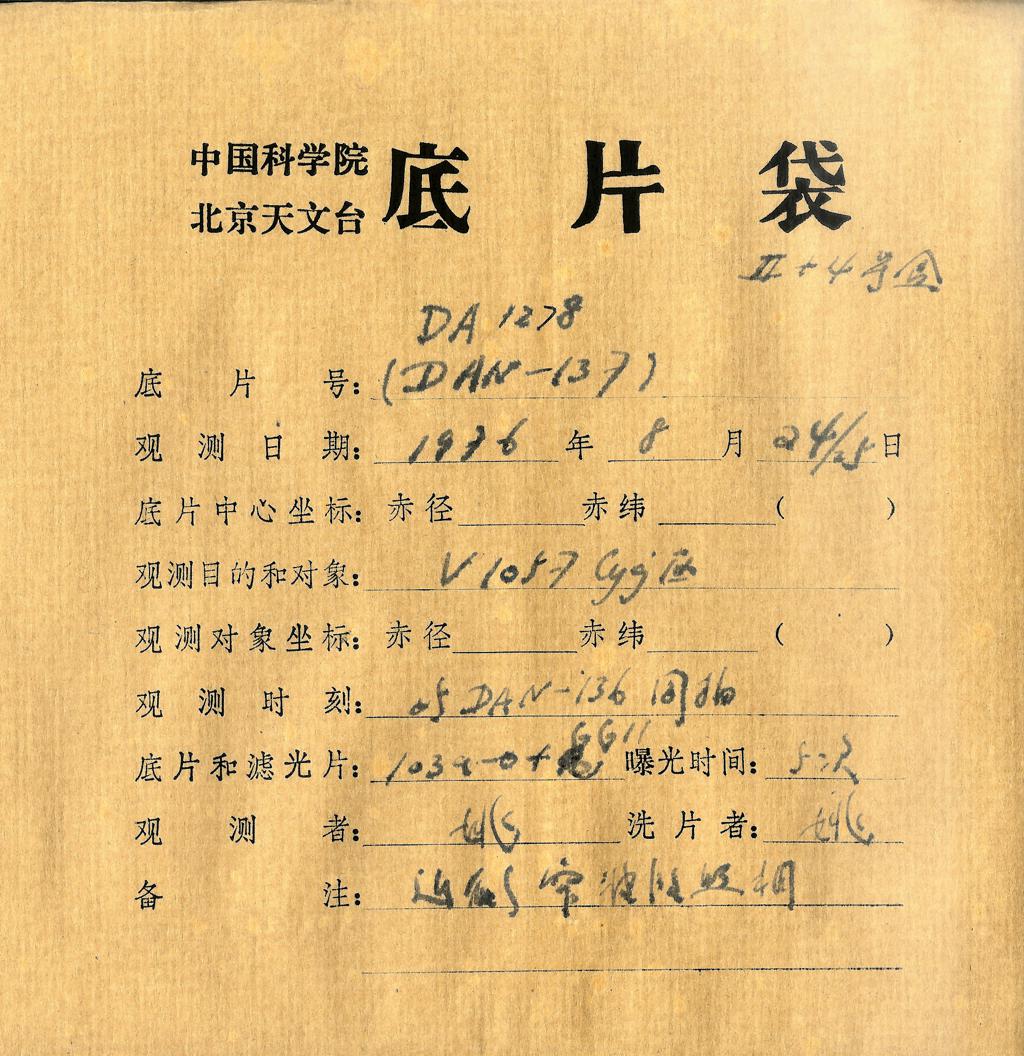 中国科学院
北京天文台
底片袋
II+4号盒
DA 1278
底片号: (DAN-137)
观测日期: 1976 年 8 月 24/25 日
底片中心坐标: 赤径 赤纬 ( )
观测目的和对象: V1057 Cyg 区
观测对象坐标: 赤径 赤纬 ( )
观测时刻: 与DAN-136 同拍
GG11
底片和滤光片: 103a-O+ 曝光时间: 5次
观测者: 姚 洗片者: 姚
备注: 窄波段照相